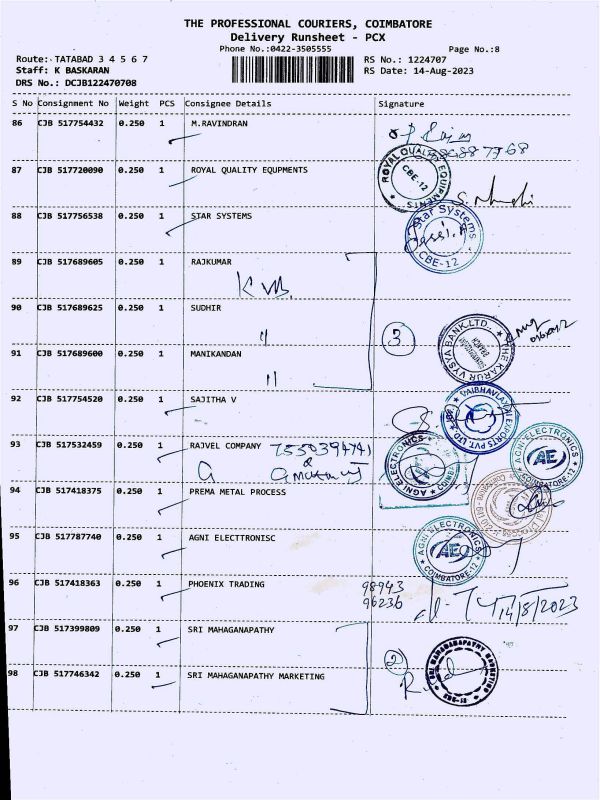 THE PROFESSIONAL COURIERS, COIMBATORE
Delivery Runsheet - PCX
Phone No.:0422-3505555 Page No.:8
Route: TATABAD 3 4 5 6 7 RS No.: 1224707
Staff: K BASKARAN RS Date: 14-Aug-2023
DRS No.: DCJB122470708
S No Consignment No Weight PCS Consignee Details Signature
86 CJB 517754432 0.250 1 M.RAVINDRAN
87 CJB 517720090 0.250 1 ROYAL QUALITY EQUPMENTS
ROYAL QUALITY EQUIPMENTS
CBE-12
88 CJB 517756538 0.250 1 STAR SYSTEMS
Star Systems
CBE-12
89 CJB 517689605 0.250 1 RAJKUMAR
KVB
90 CJB 517689625 0.250 1 SUDHIR
"
3
THE KARUR VYSYA BANK LTD.
91 CJB 517689600 0.250 1 MANIKANDAN
"
92 CJB 517754520 0.250 1 SAJITHA V
VAIBHAVLAXMI EXPORTS PVT. LTD
93 CJB 517532459 0.250 1 RAJVEL COMPANY
AGNI ELECTRONICS
AGNI ELECTRONICS
AE
COIMBATORE-12
94 CJB 517418375 0.250 1 PREMA METAL PROCESS
95 CJB 517787740 0.250 1 AGNI ELECTTRONISC
AGNI ELECTRONICS
AE
COIMBATORE-12
96 CJB 517418363 0.250 1 PHOENIX TRADING
98943
96236
14/8/2023
97 CJB 517399809 0.250 1 SRI MAHAGANAPATHY
2
SRI MAHAGANAPATHY MARKETING
98 CJB 517746342 0.250 1 SRI MAHAGANAPATHY MARKETING